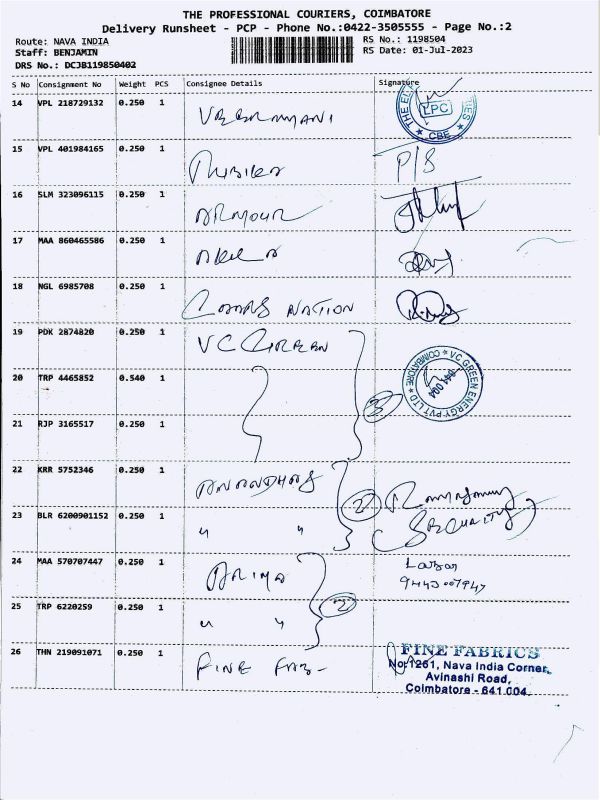 THE PROFESSIONAL COURIERS, COIMBATORE
Delivery Runsheet - PCP - Phone No.:0422-3505555 - Page No.:2
Route: NAVA INDIA
RS No.: 1198504
Staff: BENJAMIN
RS Date: 01-Jul-2023
DRS No.: DCJB119850402
S No Consignment No Weight PCS Consignee Details Signature
14 VPL 218729132 0.250 1
LPC
CBE
15 VPL 401984165 0.250 1 P/S
16 SLM 323096115 0.250 1 ARMOUR
17 MAA 860465586 0.250 1
18 NGL 6985708 0.250 1 NATION
19 PDK 2874820 0.250 1 VC GREEN
VC GREEN ENERGY PVT LTD * COIMBATORE *
641 004
20 TRP 4465852 0.540 1 3
21 RJP 3165517 0.250 1
22 KRR 5752346 0.250 1 ANANDHAS 2
23 BLR 6200901152 0.250 1 " " SECURITY
24 MAA 570707447 0.250 1
25 TRP 6220259 0.250 1 " " 2
26 THN 219091071 0.250 1 FINE FAB-
FINE FABRICS
No:1261, Nava India Corner,
Avinashi Road,
Coimbatore - 641 004.